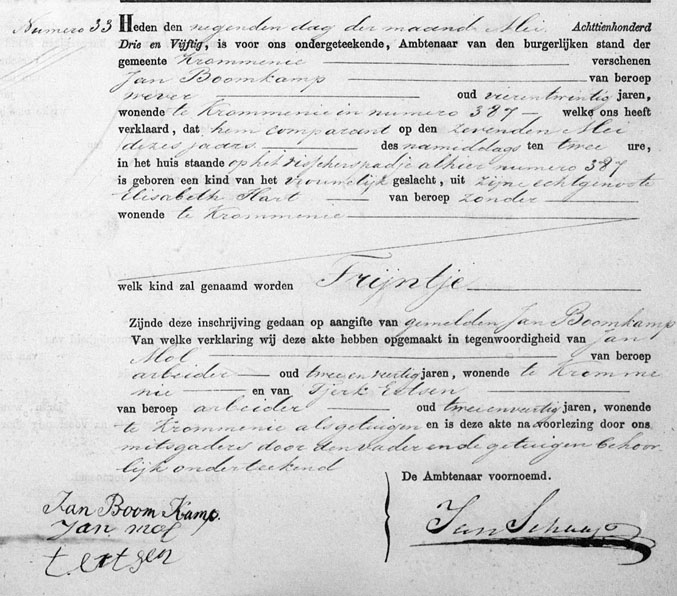 Numero 33
Heden den negenden dag der maand Mei Achttienhonderd
Drie en Vijftig, is voor ons ondergeteekende, Ambtenaar van den burgerlijken stand der
gemeente Krommenie verschenen
Jan Boomkamp van beroep
wever oud vierentwintig jaren,
wonende te Krommenie in numero 387 welke ons heeft
verklaard, dat hem comparant op den zevenden Mei
dezes jaars des namiddags ten twee ure,
in het huis staande op het visscherspadje alhier numero 387
is geboren een kind van het vrouwelijk geslacht, uit zijne echtgenoote
Elisabeth Hart van beroep zonder
wonende te Krommenie
welk kind zal genaamd worden Trijntje
Zijnde deze inschrijving gedaan op aangifte van gemelden Jan Boomkamp
Van welke verklaring wij deze akte hebben opgemaakt in tegenwoordigheid van Jan
Mol van beroep
arbeider oud twee en veertig jaren, wonende te Kromme
nie en van Tjerk
van beroep arbeider oud tweeenveertig jaren, wonende
te Krommenie als getuigen en is deze akte na voorlezing door ons
mitsgaders door den vader en de getuigen behoor
lijk onderteekend
De Ambtenaar voornoemd.
Jan Boom Kamp.
Jan mol
Jan Schaap